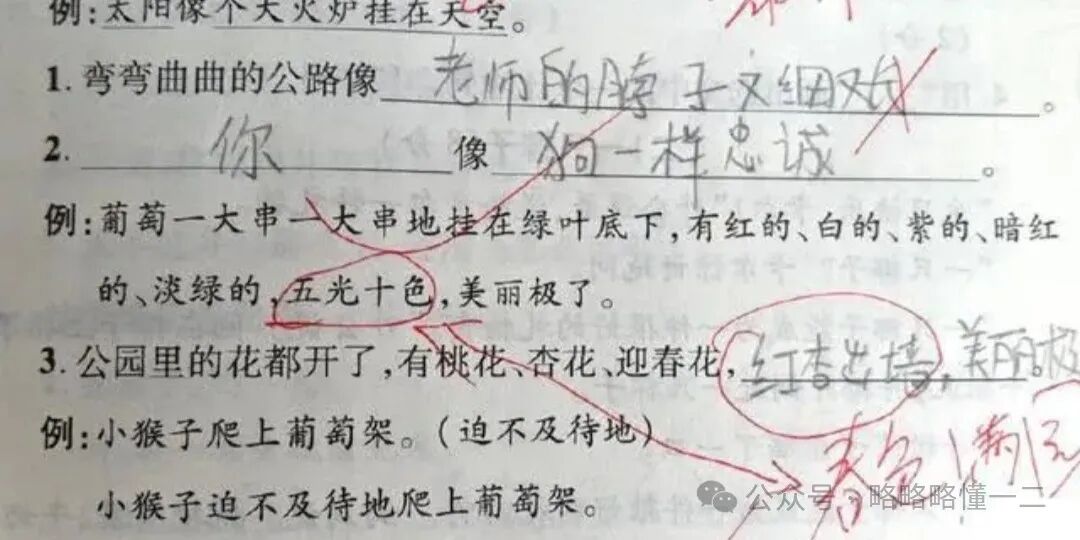 例:太阳像个大火炉挂在天空。
1. 弯弯曲曲的公路像老师的脖子又细又
2. 你像狗一样忠诚。
例:葡萄一大串一大串地挂在绿叶底下,有红的、白的、紫的、暗红
的、淡绿的,五光十色,美丽极了。
3. 公园里的花都开了,有桃花、杏花、迎春花,红杏出墙,美丽极
例:小猴子爬上葡萄架。(迫不及待地)
春色满园
小猴子迫不及待地爬上葡萄架。
公众号·略略略懂一二